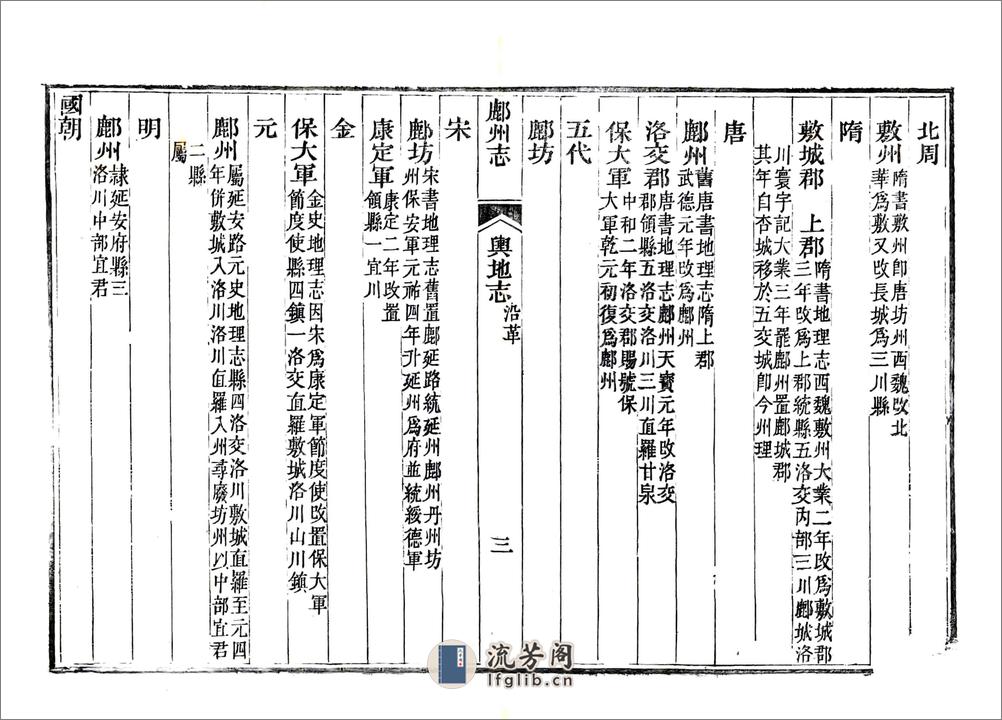 北周
敷州隋書敷州卽唐坊州西魏改北
華爲敷又改長城爲三川縣
隋
敷城郡　上郡隋書地理志西魏敷州大業二年改爲敷城郡
三年改爲上郡統縣五洛交內部三川鄜城洛
川寰宇記大業三年罷鄜州置鄜城郡
其年自杏城移於五交城卽今州理
唐
鄜州舊唐書地理志隋上郡
武德元年改爲鄜州
洛交郡唐書地理志鄜州天寶元年改洛交
郡領縣五洛交洛川三川直羅甘泉
保大軍中和二年洛交郡賜號保
大軍乾元初復爲鄜州
五代
鄜坊
鄜州志
輿地志
沿革
三
宋
鄜坊宋書地理志舊置鄜延路統延州鄜州丹州坊
州保安軍元祐四年升延州爲府並統綏德軍
康定軍康定二年改置
領縣一宜川
金
保大軍金史地理志因宋爲康定軍節度使改置保大軍
節度使縣四鎮一洛交直羅敷城洛川山川鎮
元
鄜州屬延安路元史地理志縣四洛交洛川敷城直羅至元四
年併敷城入洛川洛川直羅入州尋廢坊州以中部宜君
二縣
屬
明
鄜州隷延安府縣三
洛川中部宜君
國朝
流芳阁
lfglib.cn